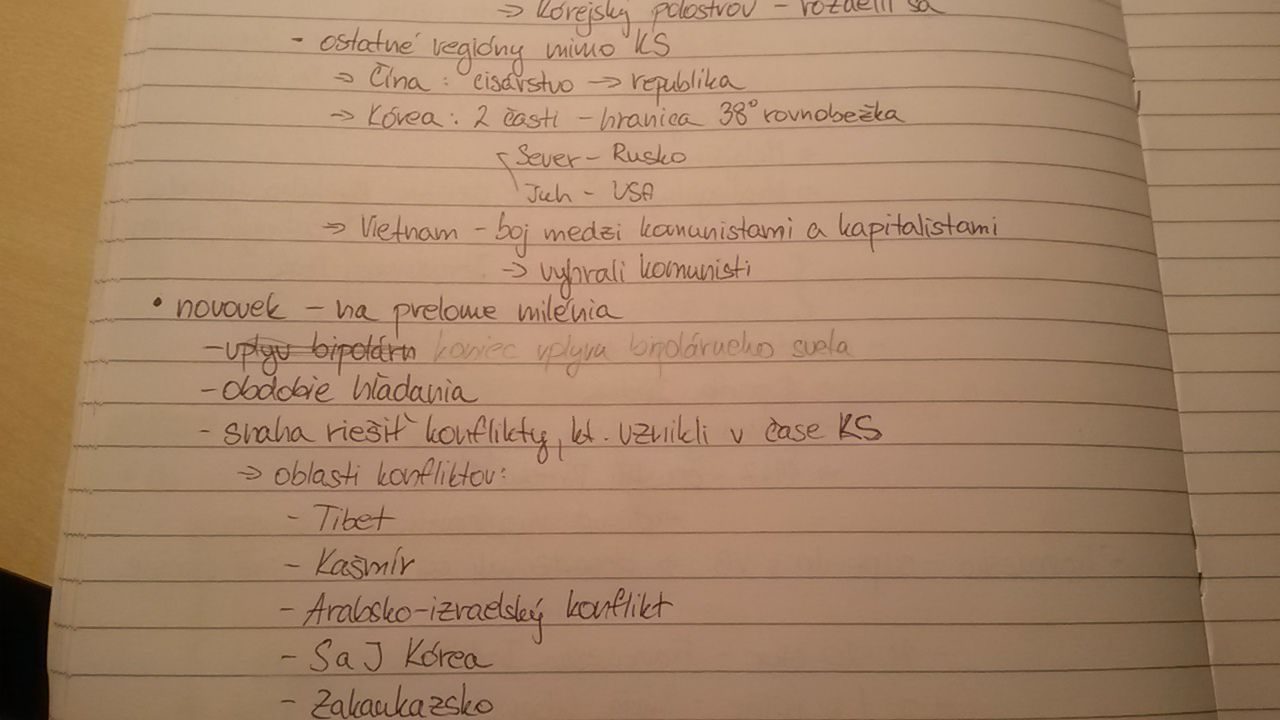 → Kórejský polostrov - rozdelil sa
- ostatné regióny mimo KS
→ Čína : cisárstvo → republika
→ Kórea : 2 časti - hranica 38° rovnobežka
Sever - Rusko
Juh - USA
→ Vietnam - boj medzi komunistami a kapitalistami
→ vyhrali komunisti
• novovek - na prelome milénia
- vplyv bipolárn koniec vplyvu bipolárneho sveta
- obdobie hľadania
- snaha riešiť konflikty, kt. vznikli v čase KS
→ oblasti konfliktov:
- Tibet
- Kašmír
- Arabsko-izraelský konflikt
- S a J Kórea
- Zakaukazsko